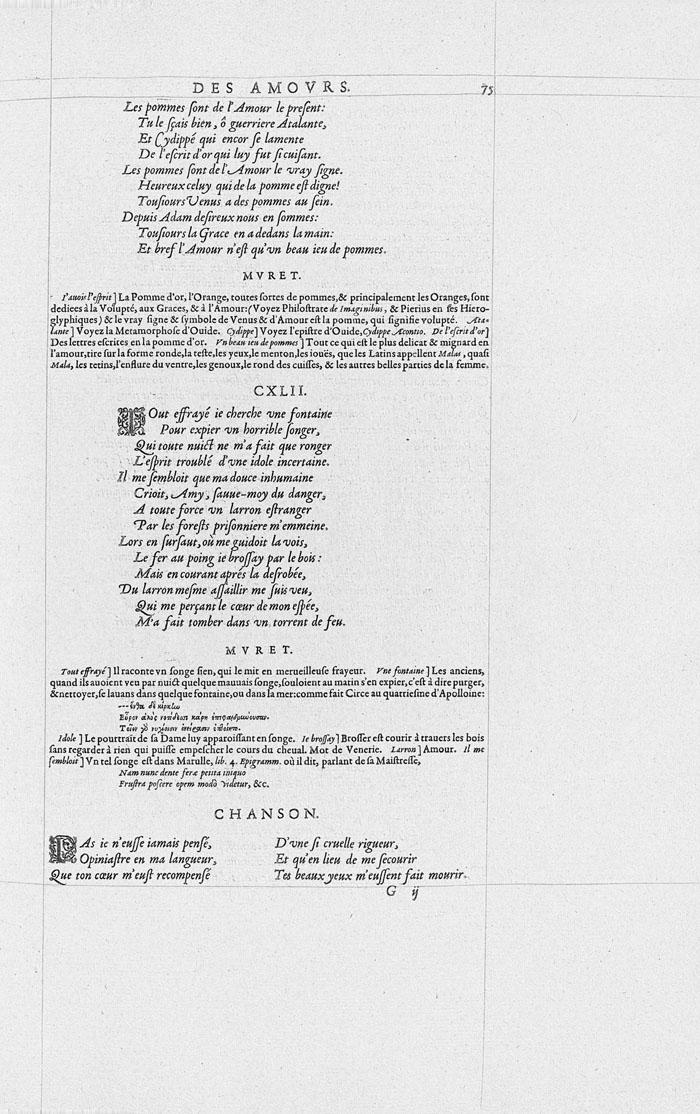 DES AMOVRS. 75
Les pommes ſont de l'Amour le preſent:
Tu le ſçais bien, ô guerriere Atalante,
Et Cydippé qui encor ſe lamente
De l'eſcrit d'or qui luy fut ſi cuiſant.
Les pommes ſont de l'Amour le vray ſigne.
Heureux celuy qui de la pomme eſt digne!
Touſiours Venus a des pommes au ſein.
Depuis Adam deſireux nous en ſommes:
Touſiours la Grace en a dedans la main:
Et bref l'Amour n'eſt qu'vn beau ieu de pommes.
MVRET.
I'auois l'eſprit] La Pomme d'or, l'Orange, toutes ſortes de pommes, & principalement les Oranges, ſont
dediees à la Volupté, aux Graces, & à l'Amour: (Voyez Philoſtrate de Imaginibus, & Pierius en ſes Hiero-
glyphiques) & le vray ſigne & ſymbole de Venus & d'Amour eſt la pomme, qui ſignifie volupté. Ata-
lante] Voyez la Metamorphoſe d'Ouide. Cydippe] Voyez l'epiſtre d'Ouide, Cydippe Acontio. De l'eſcrit d'or]
Des lettres eſcrites en la pomme d'or. Vn beau ieu de pommes] Tout ce qui eſt le plus delicat & mignard en
l'amour, tire ſur la forme ronde, la teſte, les yeux, le menton, les iouës, que les Latins appellent Malas, quaſi
Mala, les tetins, l'enflure du ventre, les genoux, le rond des cuiſſes, & les autres belles parties de la femme.
CXLII.
TOut effrayé ie cherche vne fontaine
Pour expier vn horrible ſonger,
Qui toute nuict ne m'a fait que ronger
L'eſprit troublé d'vne idole incertaine.
Il me ſembloit que ma douce inhumaine
Crioit, Amy, ſauue-moy du danger,
A toute force vn larron eſtranger
Par les foreſts priſonniere m'emmeine.
Lors en ſurſaut, où me guidoit la vois,
Le fer au poing ie broſſay par le bois:
Mais en courant aprés la deſrobée,
Du larron meſme aſſaillir me ſuis veu,
Qui me perçant le cœur de mon eſpée,
M'a fait tomber dans vn torrent de feu.
MVRET.
Tout effrayé] Il raconte vn ſonge ſien, qui le mit en merueilleuſe frayeur. Vne fontaine] Les anciens,
quand ils auoient veu par nuict quelque mauuais ſonge, ſouloient au matin s'en expier, c'eſt à dire purger,
& nettoyer, ſe lauans dans quelque fontaine, ou dans la mer: comme fait Circe au quatrieſme d'Apolloine:
Idole] Le pourtrait de ſa Dame luy apparoiſſant en ſonge. Ie broſſay] Broſſer eſt courir à trauers les bois
ſans regarder à rien qui puiſſe empeſcher le cours du cheual. Mot de Venerie. Larron] Amour. Il me
ſembloit] Vn tel ſonge eſt dans Marulle, lib. 4. Epigramm. où il dit, parlant de ſa Maiſtreſſe,
Nam nunc dente feræ petita iniquo
Fruſtra poſcere opem modò videtur, &c.
CHANSON.
PAs ie n'euſſe iamais penſé,
Opiniaſtre en ma langueur,
Que ton cœur m'euſt recompenſé
D'vne ſi cruelle rigueur,
Et qu'en lieu de me ſecourir
Tes beaux yeux m'euſſent fait mourir.
G ij